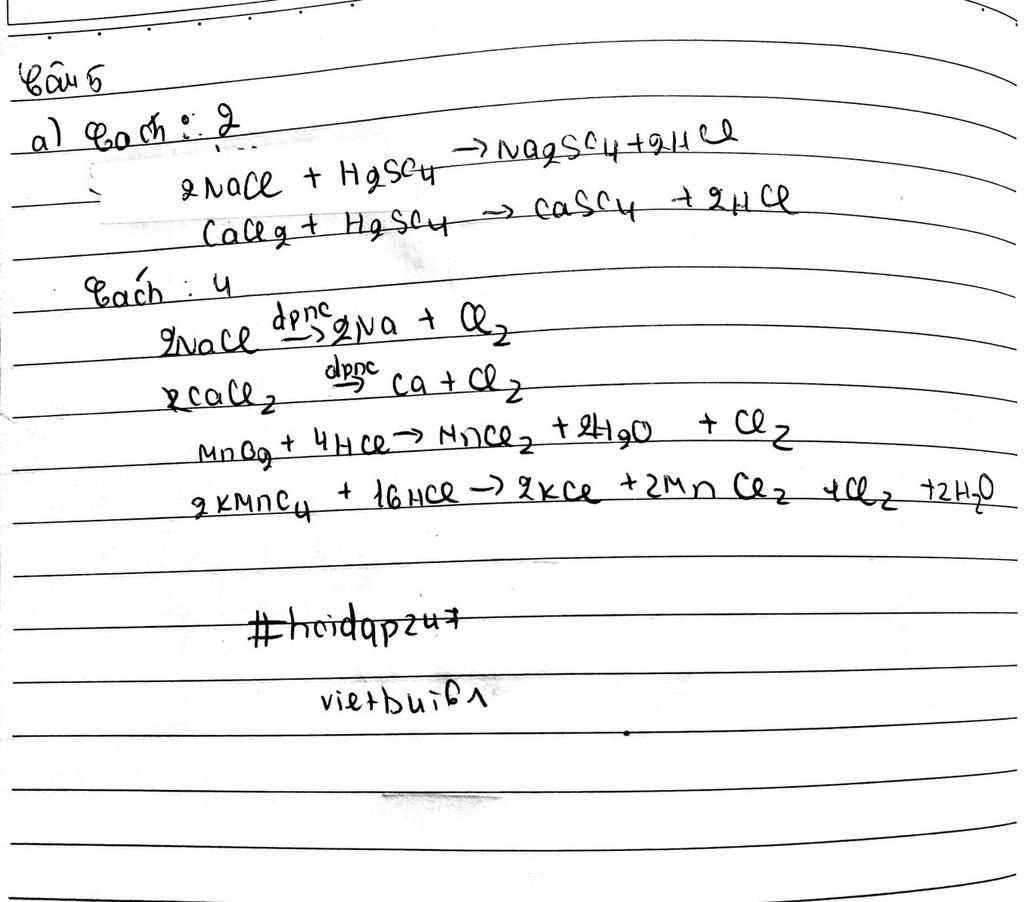 Câu 5
a) Cách : 2
2NaCl + H2SO4 → Na2SO4 + 2HCl
CaCl2 + H2SO4 → CaSO4 + 2HCl
Cách : 4
2NaCl dpnc → 2Na + Cl2
CaCl2 dpnc → Ca + Cl2
MnO2 + 4HCl → MnCl2 + 2H2O + Cl2
2KMnO4 + 16HCl → 2KCl + 2MnCl2 + Cl2 + 2H2O
#hoidap247
vietbui61